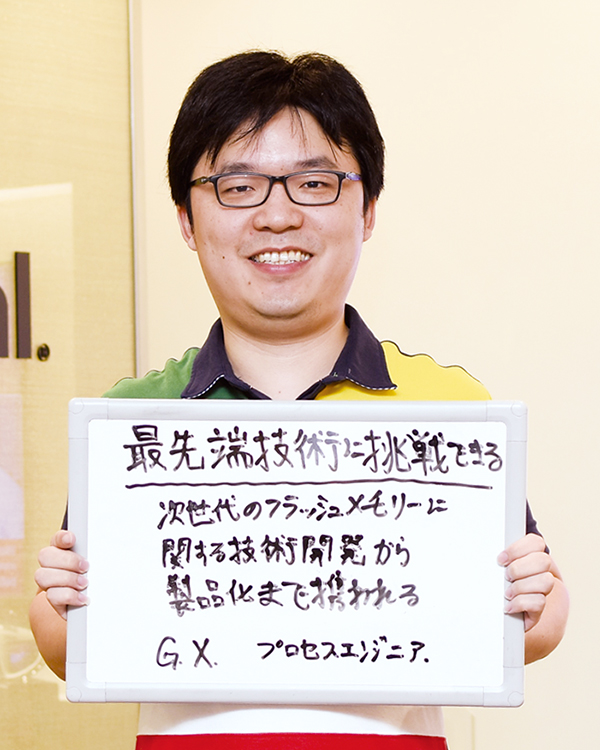 最先端技術に挑戦できる
次世代のフラッシュメモリーに
関する技術開発から
製品化まで携われる
G.X. プロセスエンジニア.